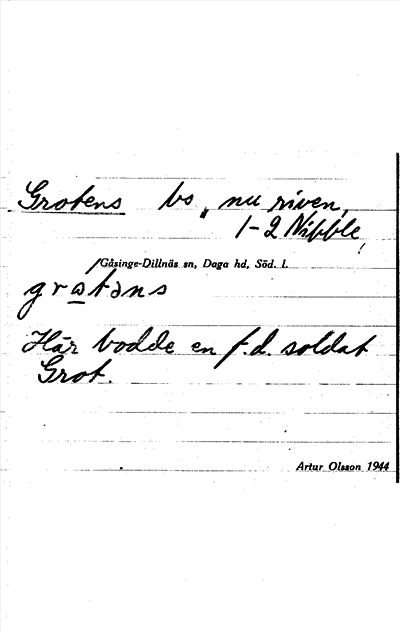 Grotens bs, nu riven,
1-2 Nibble,
Gåsinge-Dillnäs sn, Daga hd, Söd. l.
gro̲təns
Här bodde en f.d. soldat
Grot.
Artur Olsson 1944